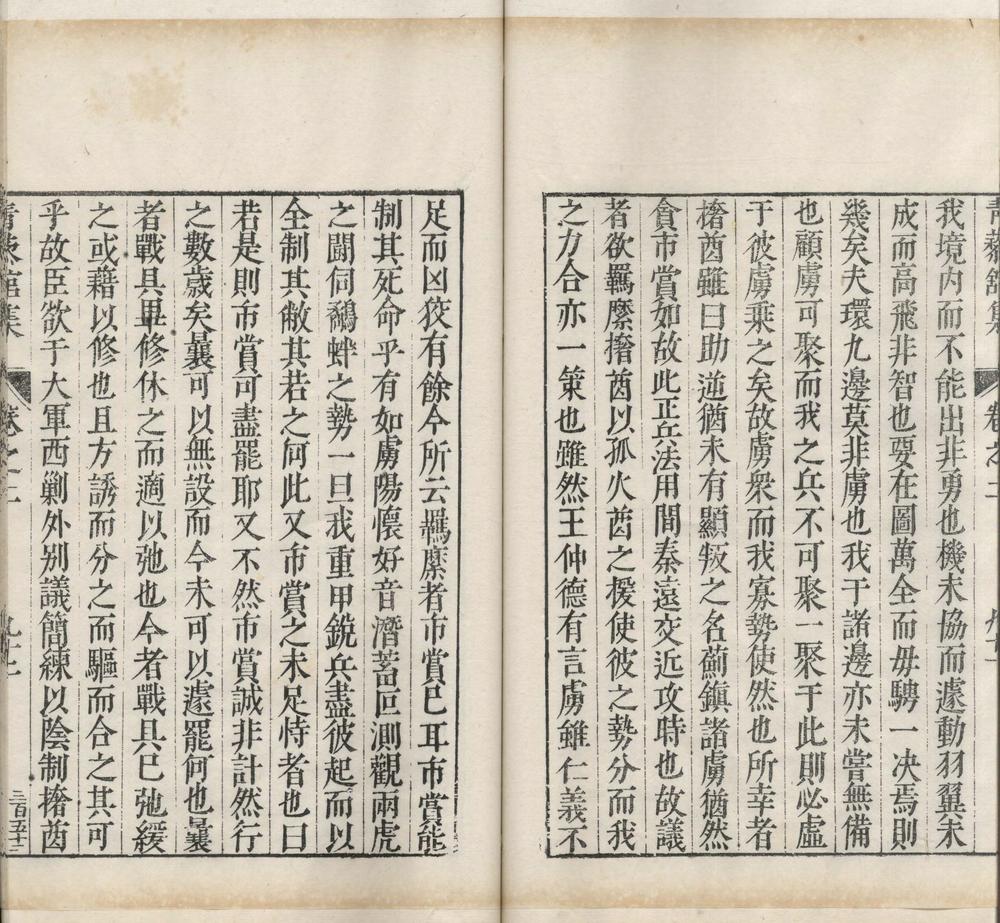 我境內而不能出非勇也機未協而遽動羽翼未
成而高飛非智也要在圖萬全而毋騁一决焉則
幾矣夫環九邊莫非虜也我于諸邊亦未嘗無備
也顧虜可聚而我之兵不可聚一聚于此則必虛
于彼虜乘之矣故虜眾而我寡勢使然也所幸者
撦酋雖曰助逆猶未有顯叛之名薊鎮諸虜猶然
貪市賞如故此正兵法用間秦遠交近攻時也故議
者欲羈縻撦酋以孤火酋之援使彼之勢分而我
之力合亦一策也雖然王仲德有言虜雖仁義不
足而凶狡有餘今所云羈縻者市賞巳耳市賞能
制其死命乎有如虜陽懷好音潛蓄叵測觀兩虎
之鬪伺鷸蚌之勢一旦我重甲銳兵盡彼起而以
全制其敝其若之何此又市賞之未足恃者也曰
若是則市賞可盡罷耶又不然市賞誠非計然行
之數歲矣曩可以無設而今未可以遽罷何也曩
者戰具畢修休之而適以弛也今者戰具巳弛緩
之或藉以修也且方誘而分之而驅而合之其可
乎故臣欲于大軍西剿外别議簡練以陰制撦酋
卷之二